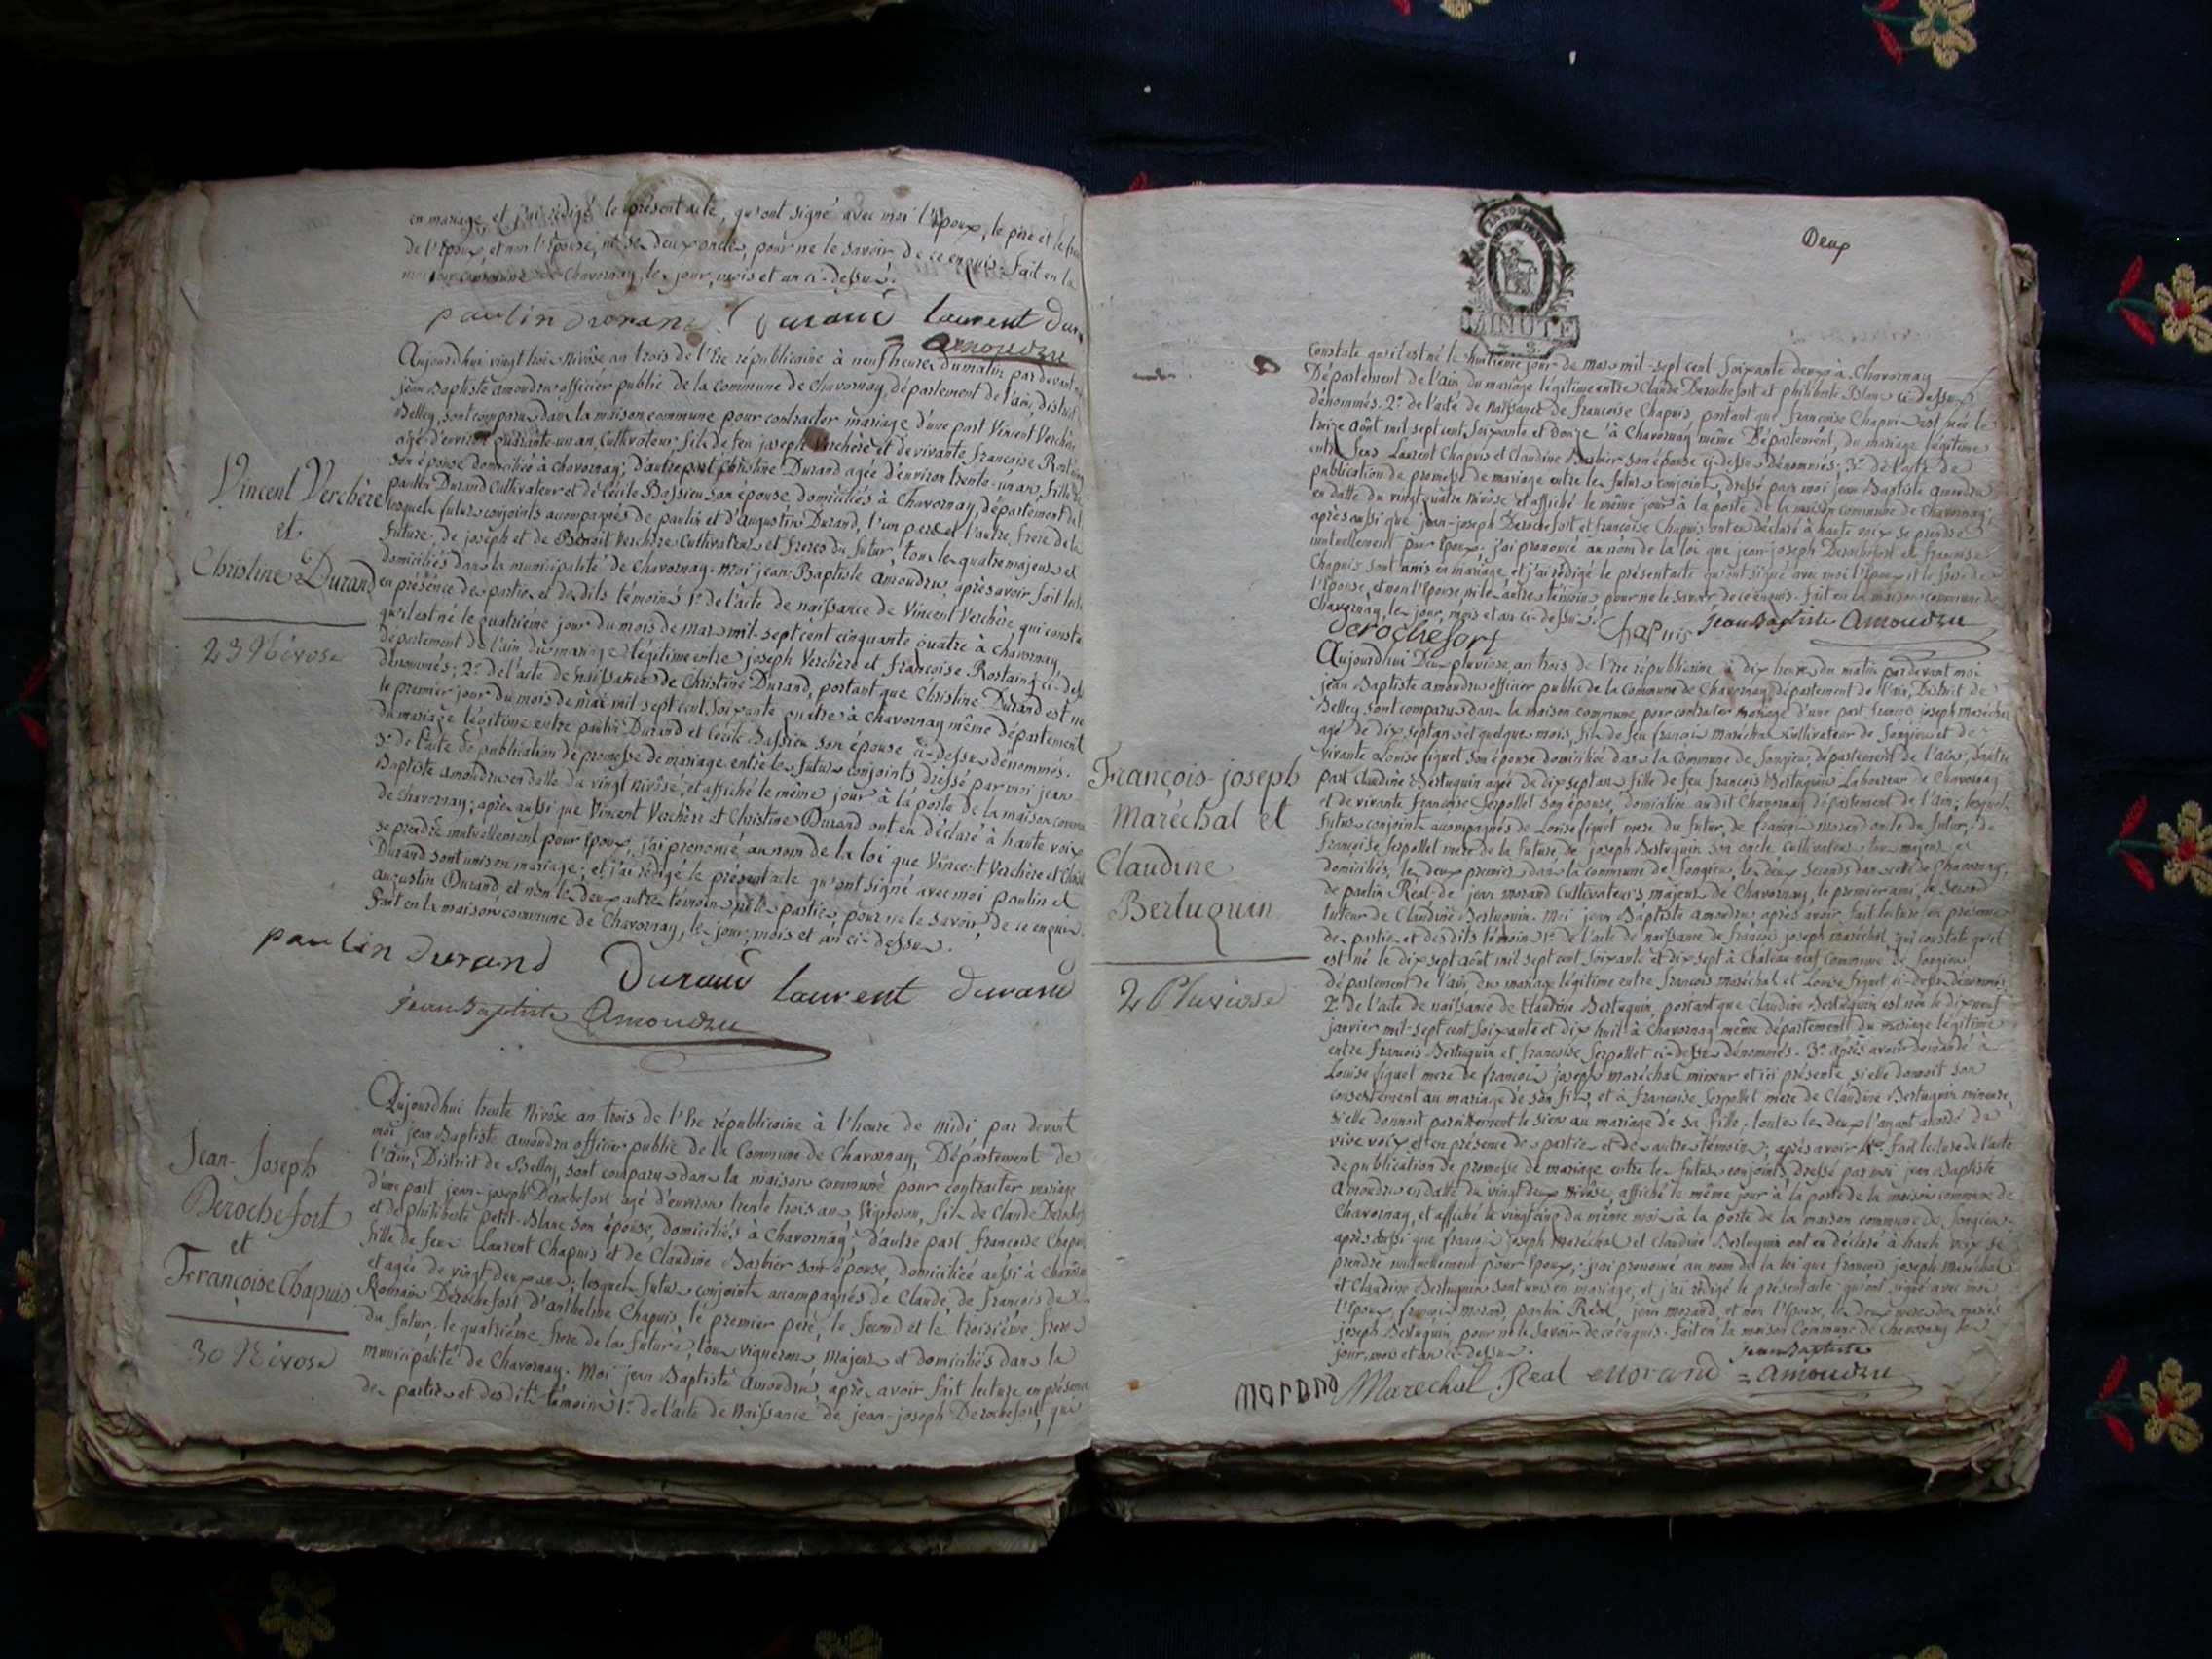 en mariage, et j'ai rédigé le présent acte, qu'ont signé avec moi l'époux, le père et le frère
de l'épouse, et non l'épouse, ni ses deux oncles, pour ne le savoir de ce enquis. fait en la
maison commune de Chavornay, les jour, mois et an ci-dessus.
paulin durand Durand laurent dura
amoudru
Aujourd'hui vingt trois Nivôse an trois de l'Ere républicaine à neuf heures du matin par devant
jean Baptiste amoudru officier public de la Commune de Chavornay, département de l'ain, district
Belley, sont comparus dans la maison commune pour contracter mariage d'une part Vincent Verchère
agé d'environ quarante-un an, Cultivateur, fils de feu joseph Verchère et de vivante françoise Rostaing
son épouse domicilié à Chavornay; d'autre part Christine Durand agée d'environ trente-un an, fille de
paulin Durand Cultivateur et de Cécile Bassieu son épouse, domiciliés à Chavornay, département de l
lesquels futurs conjoints accompagnés de paulin et d'augustin Durand, l'un pere et l'autre frere de la
future; de joseph et de Benoit Verchère Cultivateurs et freres du futur, tous les quatre majeurs et
domiciliés dans la municipalité de Chavornay. Moi jean-Baptiste amoudru, après avoir fait lecture
en présence des parties et desdits témoins 1.° de l'acte de naissance de Vincent Verchère, qui constate
qu'il est né le quatrième jour du mois de mars mil-sept cent cinquante quatre à Chavornay
département de l'ain du mariage légitime entre joseph Verchère et françoise Rostaing ci-dessus
dénommés; 2.° de l'acte de naissance de Christine Durand, portant que Christine Durand est née
le premier jour du mois de mai mil sept cent soixante quatre à Chavornay même département
du mariage légitime entre paulin Durand et Cécile Bassieu son épouse ci-dessus dénommés.
3.° de l'acte de publication de promesse de mariage entre les futurs conjoints dressé par moi jean
Baptiste amoudru en datte du vingt nivôse, et affiché le même jour à la porte de la maison commune
de Chavornay; après aussi que Vincent Verchère et Christine Durand ont eu déclaré à haute voix
se prendre mutuellement pour époux, j'ai prononcé au nom de la loi que Vincent Verchère et Christine
Durand sont unis en mariage; et j'ai rédigé le présent acte qu'ont signé avec moi paulin et
augustin Durand et non les deux autres témoins ni les parties, pour ne le savoir, de ce enquis.
Fait en la maison commune de Chavornay, les jour, mois et an ci-dessus.
Vincent Verchère
et
Christine Durand
23 Nivose
paulin durand Durand laurent durand
jean Baptiste Amoudru
Aujourd'hui trente Nivôse an trois de l'Ere républicaine à l'heure de midi par devant
moi jean Baptiste amoudru officier public de la Commune de Chavornay, Département de
l'ain, District de Belley, sont comparus dans la maison commune pour contracter mariage
d'une part jean-joseph Derochefort agé d'environ trente trois ans Vigneron, fils de Claude Derochefort
et de philiberte petit-Blanc son épouse, domiciliés à Chavornay; d'autre part françoise Chapuis
fille de feu Laurent Chapuis et de Claudine Barbier son épouse, domiciliée aussi à Chavornay
et agée de vingt deux ans; lesquels futurs conjoints accompagnés de Claude, de françois de
Romain Derochefort, d'anthelme Chapuis, le premier pere, le second et le troisième freres
du futur, le quatrième frere de la future, tous vignerons majeurs et domiciliés dans la
municipalité de Chavornay. Moi jean Baptiste amoudru, après avoir fait lecture en présence
des parties et desdits témoins 1.° de l'acte de naissance de jean-joseph Derochefort, qui
Jean-Joseph
Derochefort
et
Françoise Chapuis
30 Nivose
Deux
MINUTE
constate qu'il est né le huitième jour de mars mil-sept cent Soixante deux à Chavornay
Département de l'ain du mariage légitime entre Claude Derochefort et philiberte Blanc ci-dessus
dénommés. 2.° de l'acte de naissance de francoise Chapuis portant que francoise Chapuis est née le
treize août mil sept cent soixante et douze à Chavornay même Département, du mariage légitime
entre feus Laurent Chapuis et Claudine Barbier son épouse ci-dessus dénommés; 3.° de l'acte de
publication de promesse de mariage entre les futurs conjoints dressé par moi jean Baptiste amoudru
en datte du vingt quatre nivôse et affiché le même jour à la porte de la maison commune de Chavornay;
après aussi que jean-joseph Derochefort et françoise Chapuis ont eu déclaré à haute voix se prendre
mutuellement pour époux; j'ai prononcé au nom de la loi que jean-joseph Derochefort et françoise
Chapuis sont unis en mariage, et j'ai rédigé le présent acte qu'ont signé avec moi l'époux et le frere de
l'épouse, et non l'épouse, ni les autres témoins pour ne le savoir de ce enquis. fait en la maison commune de
Chavornay, les jour, mois et an ci-dessus.
derochefort Chapuis jean Baptiste Amoudru
Aujourd'hui Deux pluviose an trois de l'Ere républicaine à dix heures du matin par devant moi
jean Baptiste amoudru officier public de la Commune de Chavornay, département de l'ain, District de
Belley, sont comparus dans la maison commune pour contracter mariage d'une part françois joseph maréchal
agé de dix sept ans et quelques mois, fils de feu francois maréchal Cultivateur de Songieu et de
vivante Louise figuet son épouse domiciliée dans la Commune de Songieu, département de l'ain, d'autre
part Claudine Bertuquin agée de dix sept ans fille de feu francois Bertuquin Laboureur de Chavornay
et de vivante francoise Serpollet son épouse, domiciliée audit Chavornay département de l'ain; lesquels
futurs conjoints accompagnés de Louise figuet mere du futur, de françois morand oncle du futur; de
françoise Serpollet mere de la future, de joseph Bertuquin son oncle cultivateurs tous majeurs et
domiciliés, les deux premiers dans la commune de Songieu, les deux seconds dans celle de Chavornay,
de paulin Réal, de jean morand Cultivateurs majeurs de Chavornay, le premier ami, le second
tuteur de Claudine Bertuquin. Moi jean Baptiste amoudru après avoir fait lecture en présence
des parties et desdits témoins 1.° de l'acte de naissance de françois joseph maréchal, qui constate qu'il
est né le dix sept août mil sept cent soixante et dix sept à Château-neuf Commune de Songieu
département de l'ain, du mariage légitime entre francois maréchal et Louise figuet ci-dessus dénommés
2.° de l'acte de naissance de Claudine Bertuquin, portant que Claudine Bertuquin est née le dix neuf
janvier mil-sept cent soixante et dix huit à Chavornay même département du mariage légitime
entre francois Bertuquin et francoise Serpollet ci-dessus dénommés. 3.° après avoir demandé à
Louise figuet mere de francois joseph maréchal mineur et ici présente si elle donnoit son
consentement au mariage de son fils, et à francoise Serpollet mere de Claudine Bertuquin mineure,
si elle donnoit pareillement le sien au mariage de sa fille, toutes les deux l'ayant accordé de
vive voix et en présence des parties et des autres témoins; après avoir fait lecture de l'acte
de publication de promesse de mariage entre les futurs conjoints, dressé par moi jean Baptiste
Amoudru en datte du vingt deux nivôse, affiché le même jour à la porte de la maison commune de
Chavornay, et affiché le vingt cinq du même mois à la porte de la maison commune de Songieu;
après aussi que françois joseph maréchal et Claudine Bertuquin ont eu déclaré à haute voix se
prendre mutuellement pour époux; j'ai prononcé au nom de la loi que francois joseph maréchal
et Claudine Bertuquin sont unis en mariage, et j'ai rédigé le présent acte qu'ont signé avec moi
l'époux, françois morand, paulin Réal, jean morand, et non l'épouse, les deux meres des mariés
joseph Bertuquin, pour ne le savoir de ce enquis. fait en la maison Commune de Chavornay les
jour, mois et an ci-dessus.
François-joseph
Maréchal et
Claudine
Bertuquin
2 Pluviose
morand Marechal Real Morand jean Baptiste amoudru